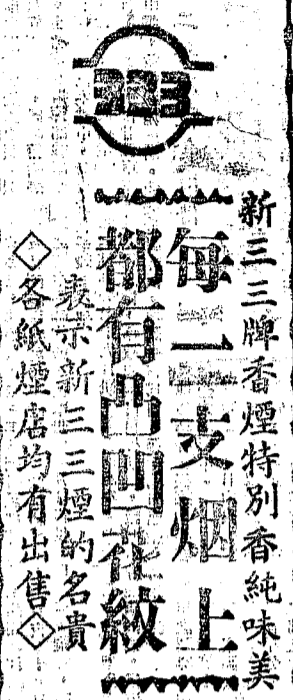 333
新三三牌香煙特別香純味美
每二支烟上
都有凸凹花紋
表示新三三煙的名貴
◇各紙煙店均有出售◇